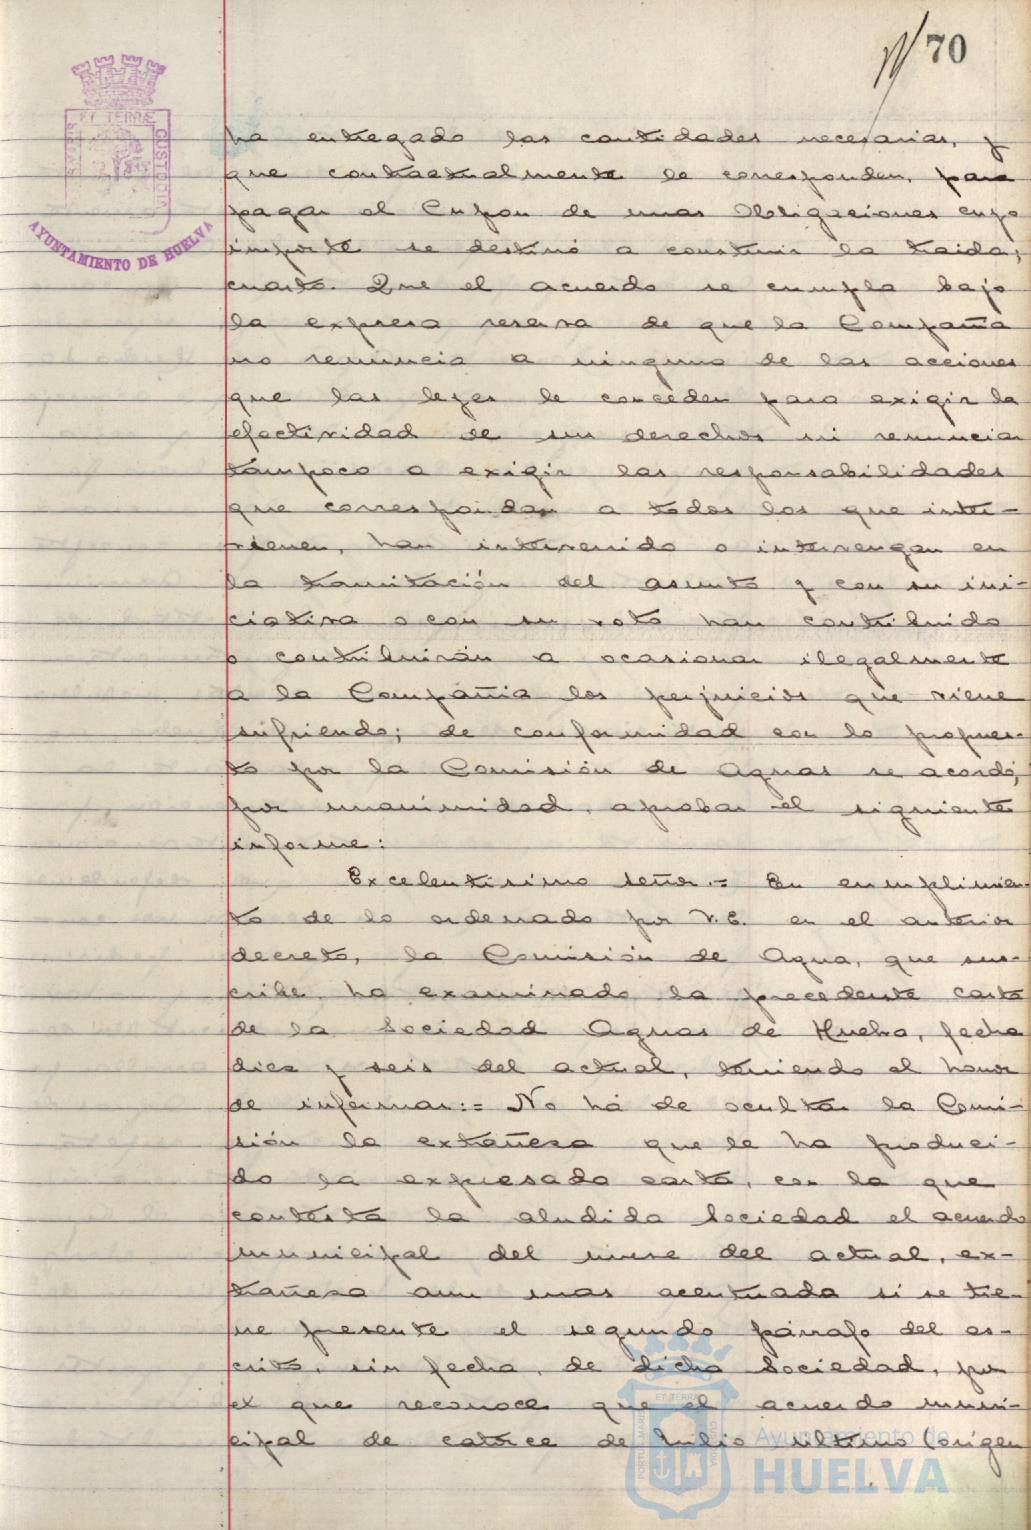 70
ET TERRÆ
CUSTODIA
AYUNTAMIENTO DE HUELVA
ha entregado las cantidades necesarias, y
que contractualmente le corresponden, para
pagar el Cupon de unas Obligaciones cuyo
importe se destinó a construir la traida;
cuarto. Que el acuerdo se cumpla bajo
la expresa reserva de que la Compañia
no renuncia a ninguna de las acciones
que las leyes le conceden para exigir la
efectividad de sus derechos ni renuncia
tampoco a exigir las responsabilidades
que correspondan a todos los que inter-
vienen, han intervenido o intervengan en
la tramitación del asunto y con su ini-
ciativa o con su voto han contribuido
o contribuirán a ocasionar ilegalmente
a la Compañia los perjuicios que viene
sufriendo; de conformidad con lo propues-
to por la Comisión de Aguas se acordó,
por unanimidad, aprobar el siguiente
informe:
Excelentisimo señor.= En cumplimien-
to de lo ordenado por V.E. en el anterior
decreto, la Comisión de Agua, que sus-
cribe, ha examinado la precedente carta
de la Sociedad Aguas de Huelva, fecha
diez y seis del actual, teniendo el honor
de informar:= No há de ocultar la Comi-
sión la extrañeza que le ha produci-
do la expresada carta, con la que
contesta la aludida Sociedad el acuerdo
municipal del nueve del actual, ex-
trañeza aun mas acentuada si se tie-
ne presente el segundo párrafo del es-
crito, sin fecha, de dicha Sociedad, por
el que reconoce que el acuerdo muni-
cipal de catorce de Julio último (origen
Ayuntamiento de
HUELVA